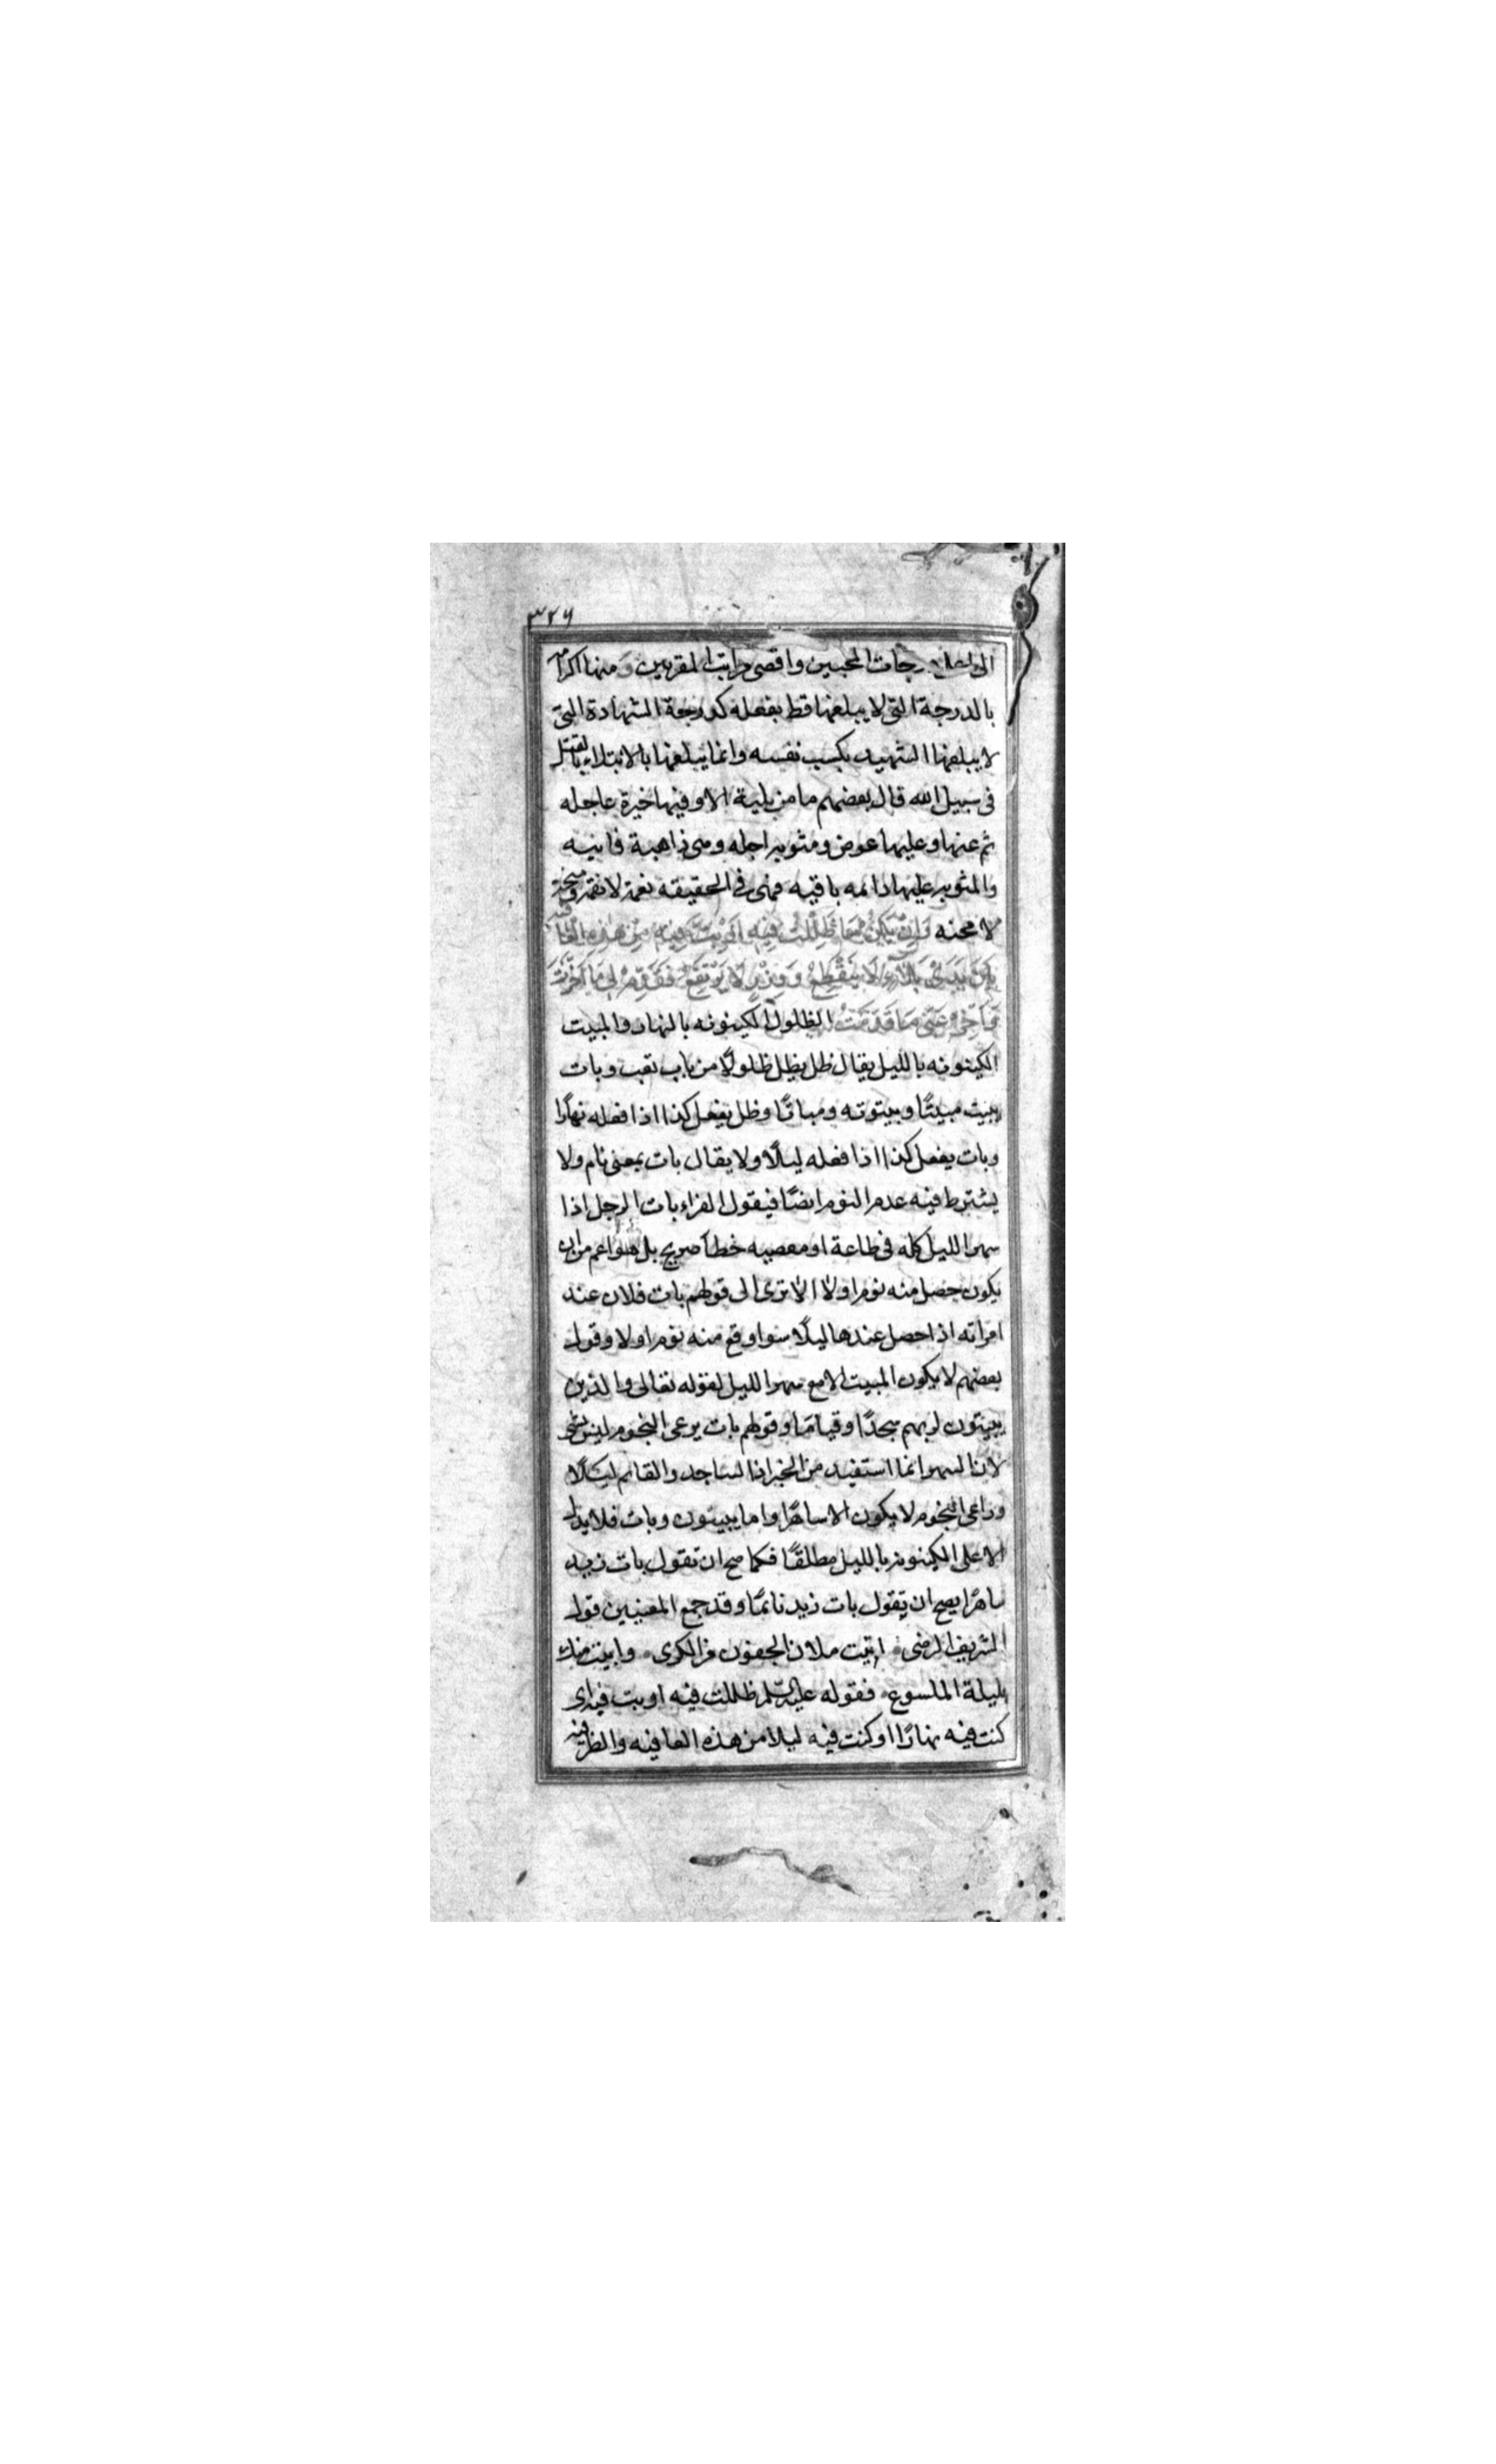 ۳۲۶
الى اعلى درجات المحبين واقصى مراتب المقربين ومنها اكرامه
بالدرجة التى لا يبلغها قط بفعله كدرجة الشهادة التى
لا يبلغها الشهيد بكسب نفسه وانما يبلغها بالابتلاء بالقتل
فى سبيل الله قال بعضهم ما من بلية الا وفيها خيرة عاجله
ثم عنها وعليها عوض ومثوبه اجله وهى ذاهبة فانيه
والمثوبه عليها دائمه باقيه فهى فى الحقيقه نعمة لا نقمة ومنحة
لا محنه وَاِنْ يَكُنْ مَا ظَلِلْتُ فِيهِ اَوْ بِتُّ فِيهِ مِنْ هٰذِهِ العَافيه
بَيْنَ يَدَىْ بَلَاءٍ لَا يَنْقَطِعُ وَوِزْرٍ لَا يَرْتَفِعُ فَقَدِّمْ لِى مَا اَخَّرْتَ
وَاَخِّرْ عَنّى مَا قَدَّمْتَ الظلول الكينونه بالنهار والمبيت
الكينونه بالليل يقال ظل يظل ظلولًا من باب تعب وبات
يبيت مبيتًا وبيتوته ومباتًا وظل يفعل كذا اذا فعله نهارًا
وبات يفعل كذا اذا فعله ليلًا ولا يقال بات بمعنى نام ولا
يشترط فيه عدم النوم ايضًا فيقول الفراء بات الرجل اذا
سهر الليل كله فى طاعة او معصيه خطأ صريح بل هو اعم من ان
يكون حصل منه نوم اولا الا ترى الى قولهم بات فلان عند
امراته اذا حصل عندها ليلًا سوا وقع منه نوم اولا وقول
بعضهم لا يكون المبيت الا مع سهر الليل لقوله تعالى والذين
يبيتون لربهم سجدًا وقيامًا وقولهم بات يرعى النجوم ليس بشى
لان السهر انما استفيد من الخبر اذ الساجد والقائم ليلًا
وراعى النجوم لا يكون الا ساهرًا واما يبيتون وبات فلا يدل
الا على الكينونه بالليل مطلقًا فكما صح ان تقول بات زيد
ساهرًا يصح ان تقول بات زيد نائمًا وقد جمع المعنيين قول
الشريف الرضى اتبيت ملان الجفون من الكرى وابيت منك
بليلة الملسوع فقوله عليه السلم ظللت فيه او بت فيه اى
كنت فيه نهارًا او كنت فيه ليلا من هذه العافيه والظرفيه